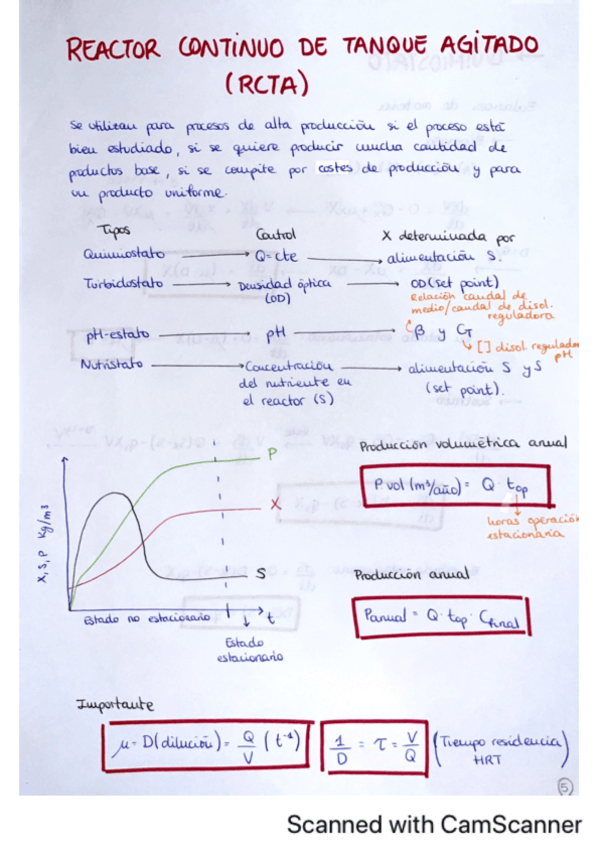 REACTOR CONTINUO DE TANQUE AGITADO
(RCTA)
Se utilizan para procesos de alta producción si el proceso está
bien estudiado, si se quiere producir mucha cantidad de
productos base, si se compite por costes de producción y para
un producto uniforme.
Tipos Control X determinada por
Quimiostato → Q=cte → alimentación S.
Turbidostato → Densidad óptica → OD(set point)
(OD)
Relación caudal de
medio/caudal de disol.
reguladora
pH-estato → pH → β y Cr
↳ [ ] disol. regulador
pH
Nutristato → Concentración → alimentación S y S
del nutriente en (set point).
el reactor (S)
Producción volumétrica anual
P vol (m³/año) = Q · top
↓
horas operación
estacionaria
X, S, P kg/m³
P
X
S
t
Estado no estacionario
Estado
estacionario
Producción anual
Panual = Q · top · Cfinal
Importante
μ = D(dilución) = Q/V (t⁻¹)
1/D = τ = V/Q (Tiempo residencia)
HRT
5
Scanned with CamScanner